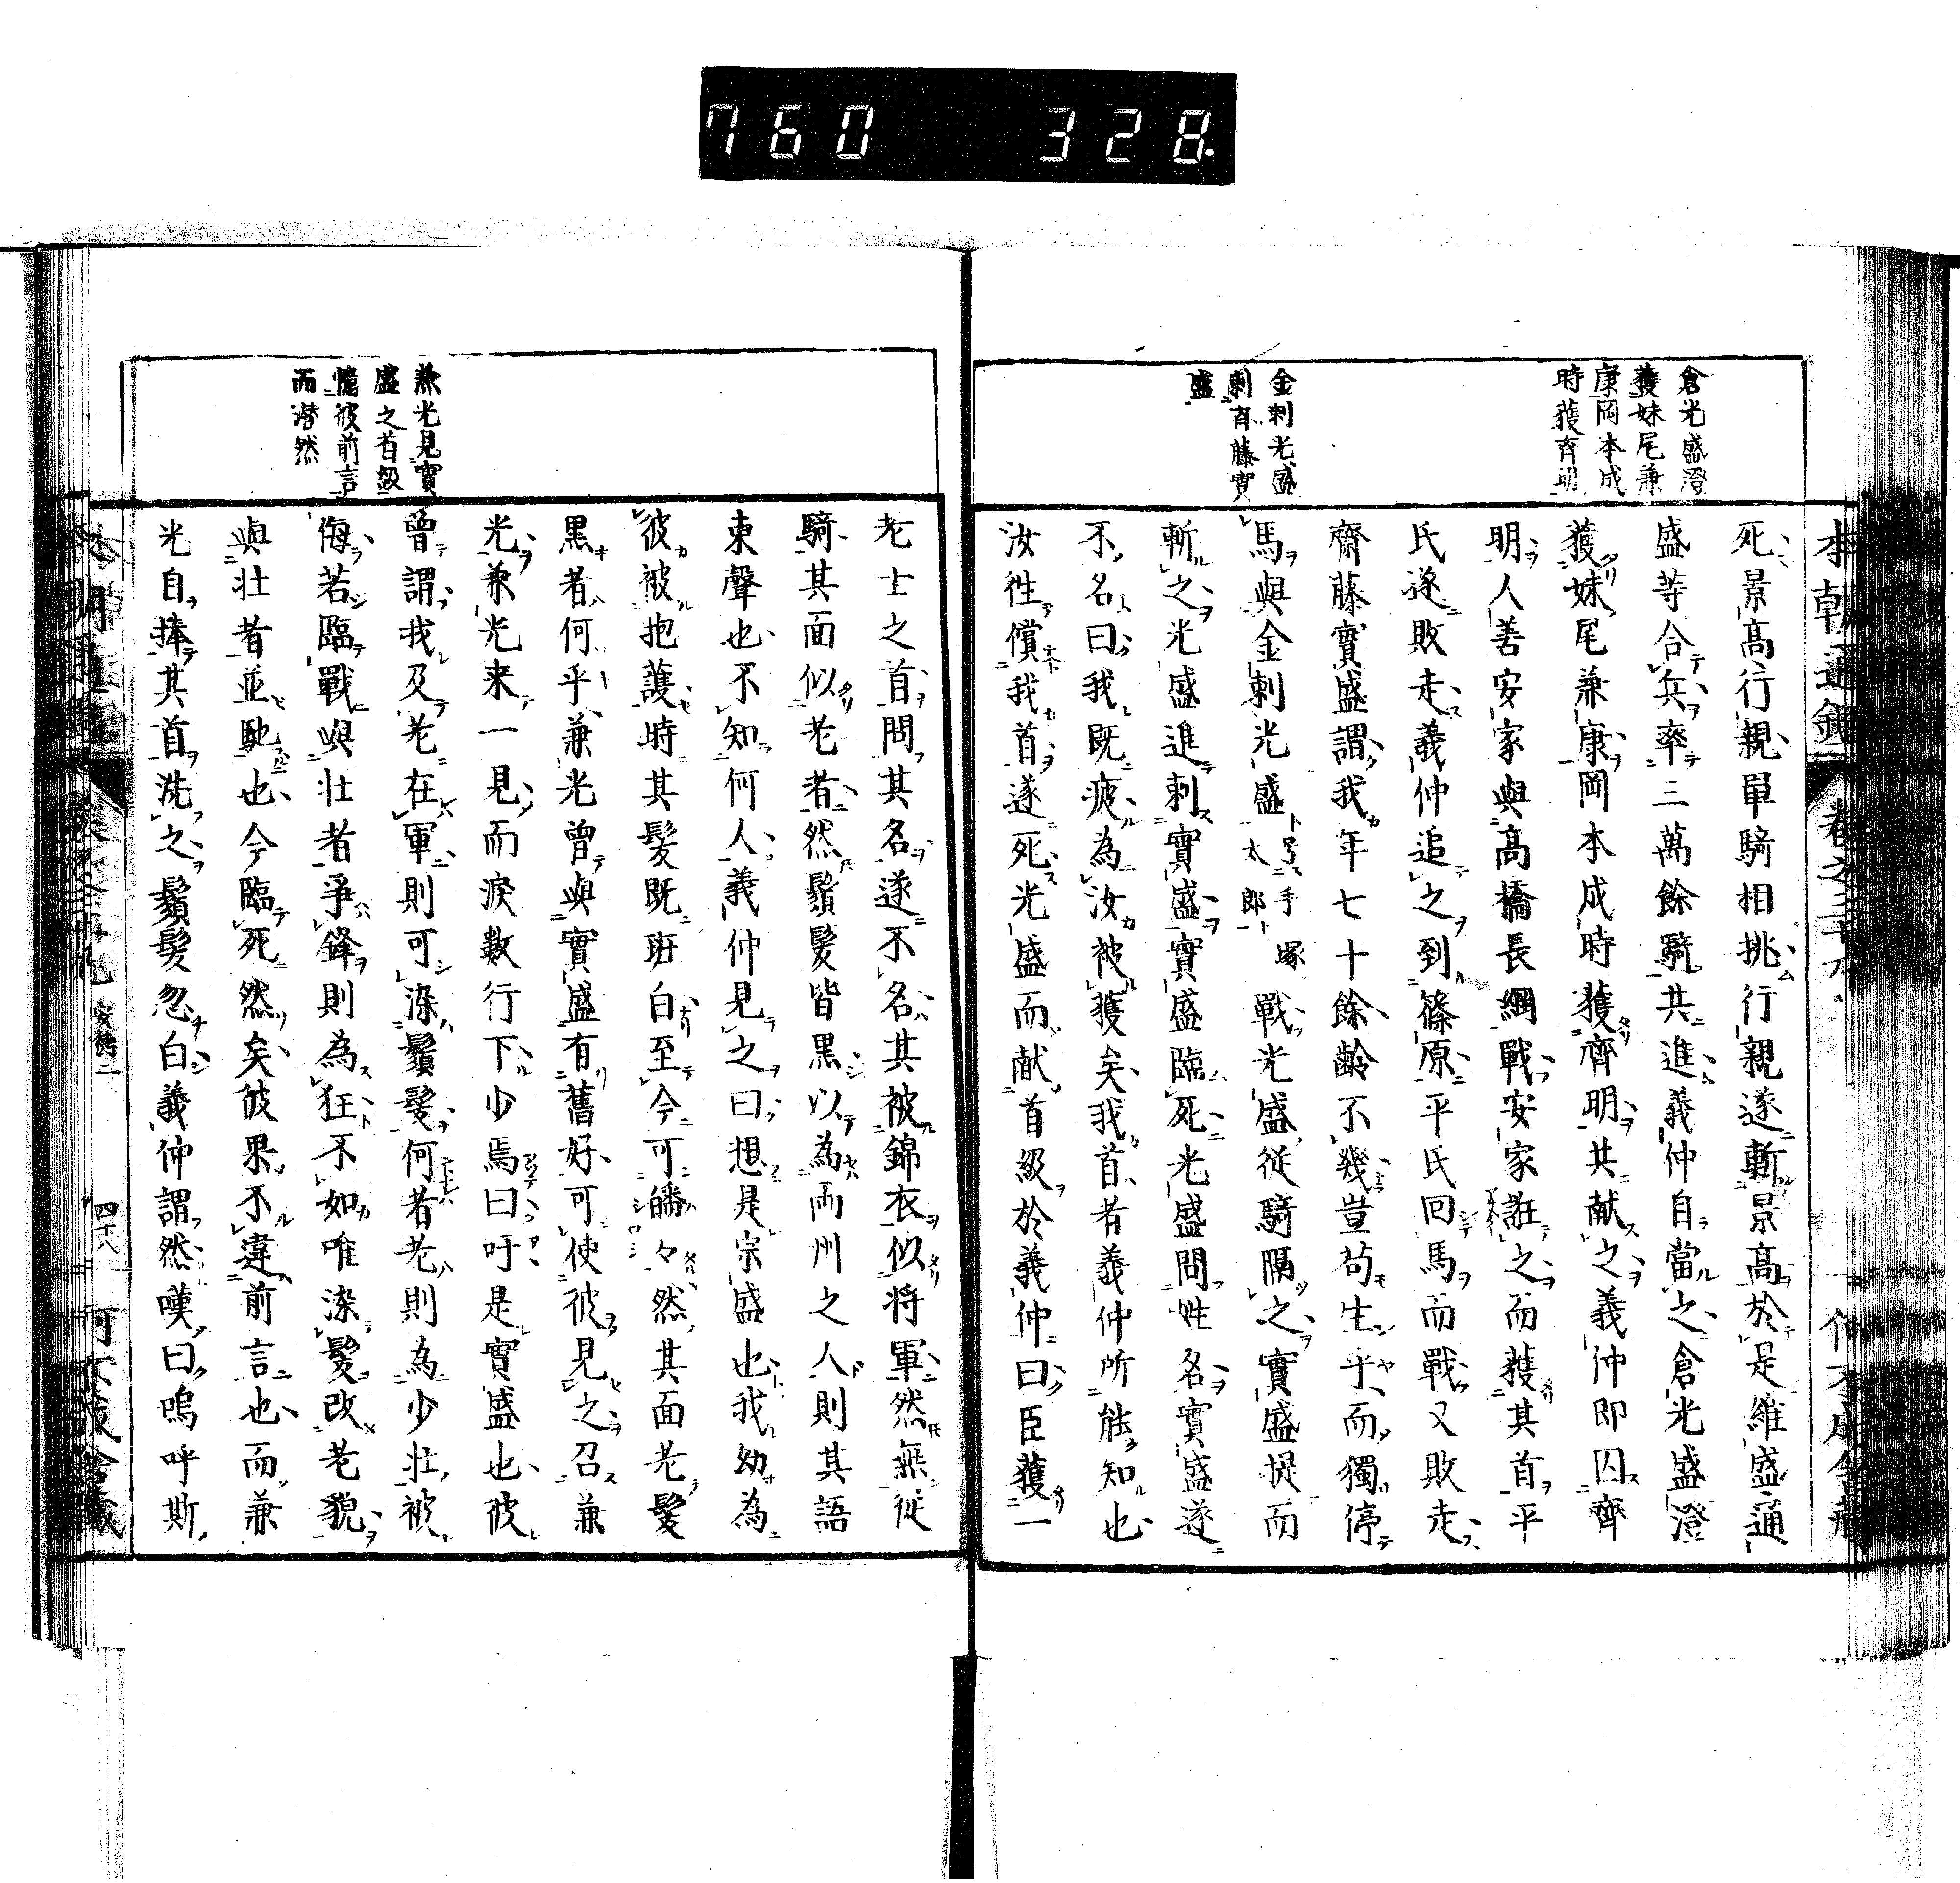 760 328
倉光盛澄
獲妹尾兼
康岡本成
時獲齊明
金刺光盛
刺首藤實
盛
本朝通鑑 卷之二十九
死景高行親單騎相挑行親遂斬景高於是維盛通
盛等合兵率三萬餘騎共進義仲自當之倉光盛澄
獲妹尾兼康岡本成時獲齊明其献之義仲即囚齊
明人善安家與高橋長綱戰安家誑之而獲其首平
氏遂敗走義仲追之到篠原平氏回馬而戰又敗走
齋藤實盛謂我年七十餘齡不幾豈苟生乎而獨停
馬與金刺光盛号手塚太郎戰光盛從騎隔之實盛提而
斬之光盛進刺實盛實盛臨死光盛問姓名實盛遂
不名曰我既疲為汝被獲矣我首者義仲所能知也
汝徃償我首遂死光盛而献首級於義仲曰臣獲一
兼光見實
盛之首級
憶彼前言
而潸然
老士之首問其名遂不名其被錦衣似将軍然無從
騎其面似老者然鬚髮皆黒以為両州之人則其語
東聲也不知何人義仲見之曰想是宗盛也我幼為
彼被抱護時其髮既班白至今可皤々然其面老髮
黒者何乎兼光曾與實盛有舊好可使彼見之召兼
光兼光来一見而淚數行下少焉曰吁是實盛也彼
曾謂我及老在軍則可染鬚髮何者老則為少壮被
侮若臨戰與壮者爭鋒則為狂不如唯染髮改老貌
與壮者並馳也今臨死然矣彼果不違前言也而兼
光自捧其首洗之鬚髮忽白義仲謂然嘆曰嗚呼斯
安德二
四十八